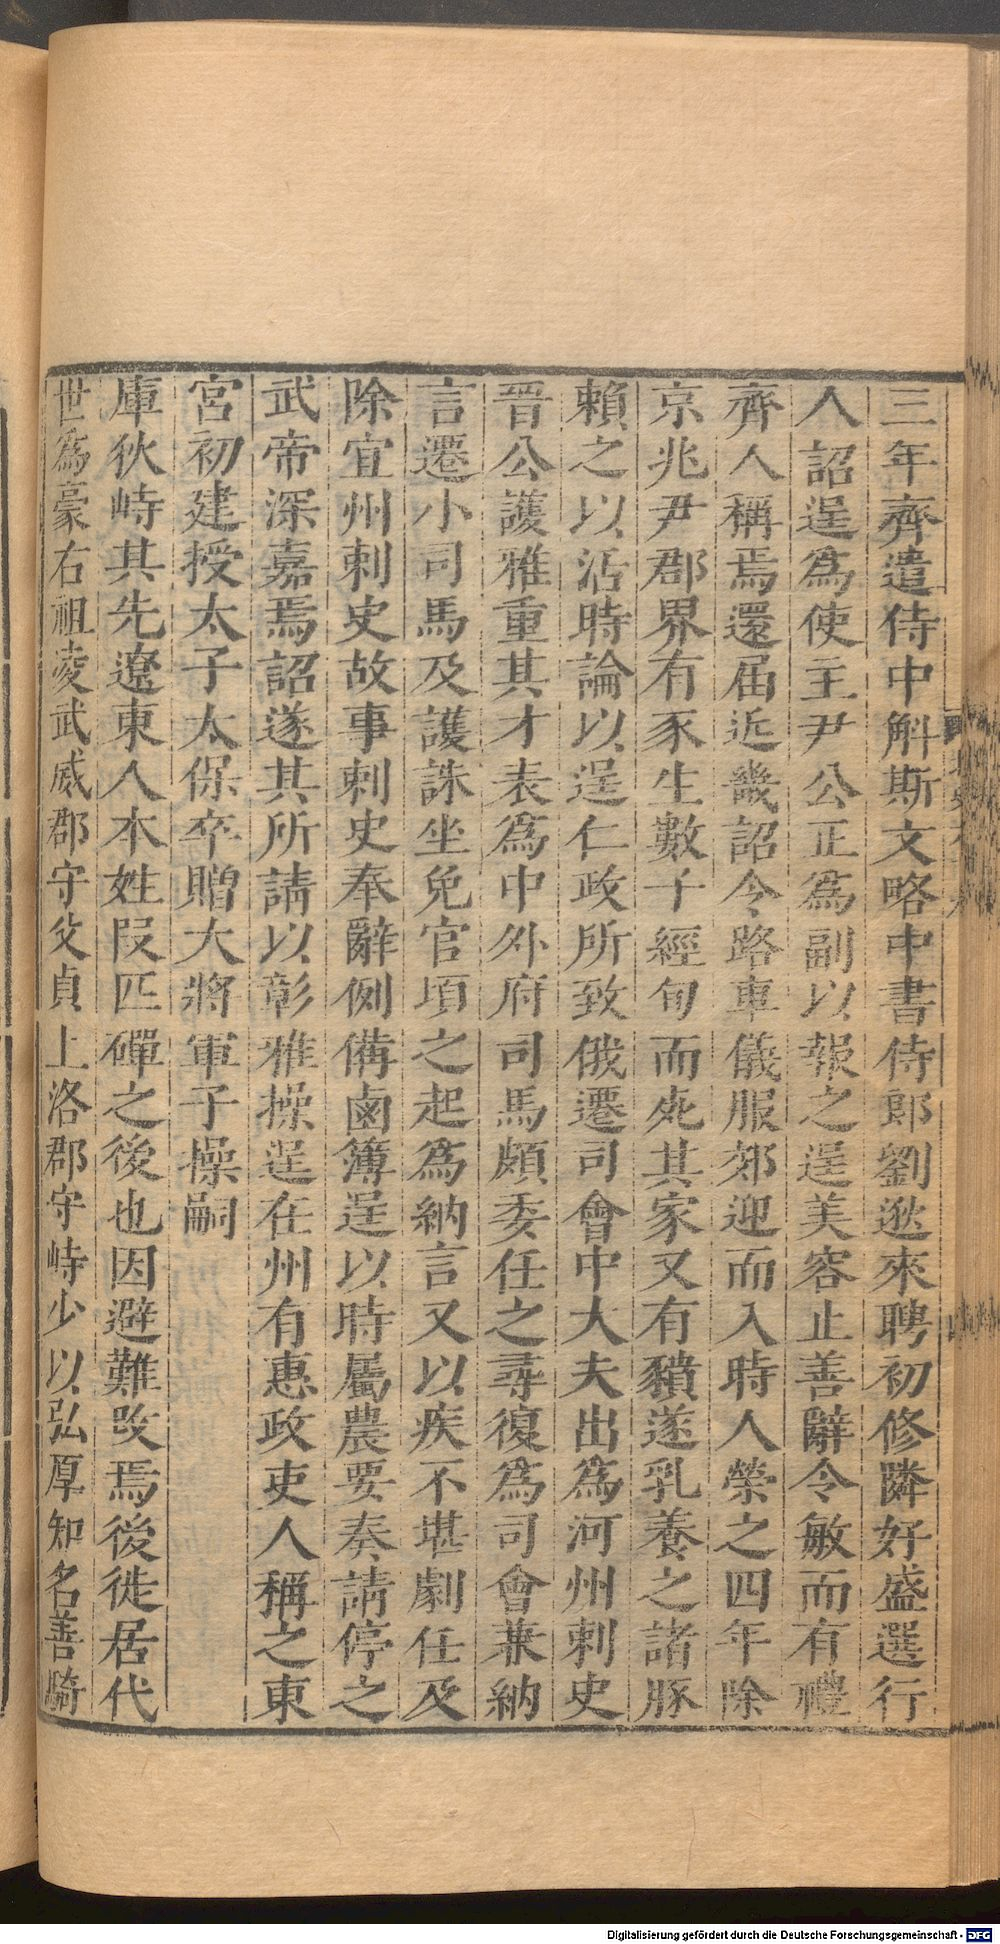 三年齊遣侍中斛斯文略中書侍郎劉逖來聘初修隣好盛選行
人詔逞爲使主尹公正爲副以報之逞美容止善辭令敏而有禮
齊人稱焉還届近畿詔令路車儀服郊迎而入時人榮之四年除
京兆尹郡界有豕生數子經旬而死其家又有豶遂乳養之諸豚
賴之以活時論以逞仁政所致俄遷司會中大夫出爲河州刺史
晉公護雅重其才表爲中外府司馬頗委任之尋復爲司會兼納
言遷小司馬及護誅坐免官頃之起爲納言又以疾不堪劇任及
除宜州刺史故事刺史奉辭例備鹵簿逞以時屬農要奏請停之
武帝深嘉焉詔遂其所請以彰雅操逞在州有惠政吏人稱之東
宮初建授太子太保卒贈大將軍子操嗣
庫狄峙其先遼東人本姓叚匹磾之後也因避難改焉後徙居代
世爲豪右祖凌武威郡守父貞上洛郡守峙少以弘厚知名善騎
Digitalisierung gefördert durch die Deutsche Forschungsgemeinschaft - DFG